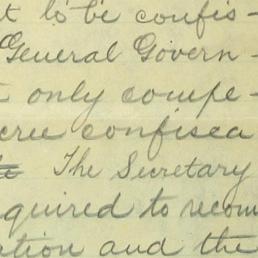 t to be confis-
General Govern-
only compe-
cree confisca
The Secretary
quired to recom
ation and the